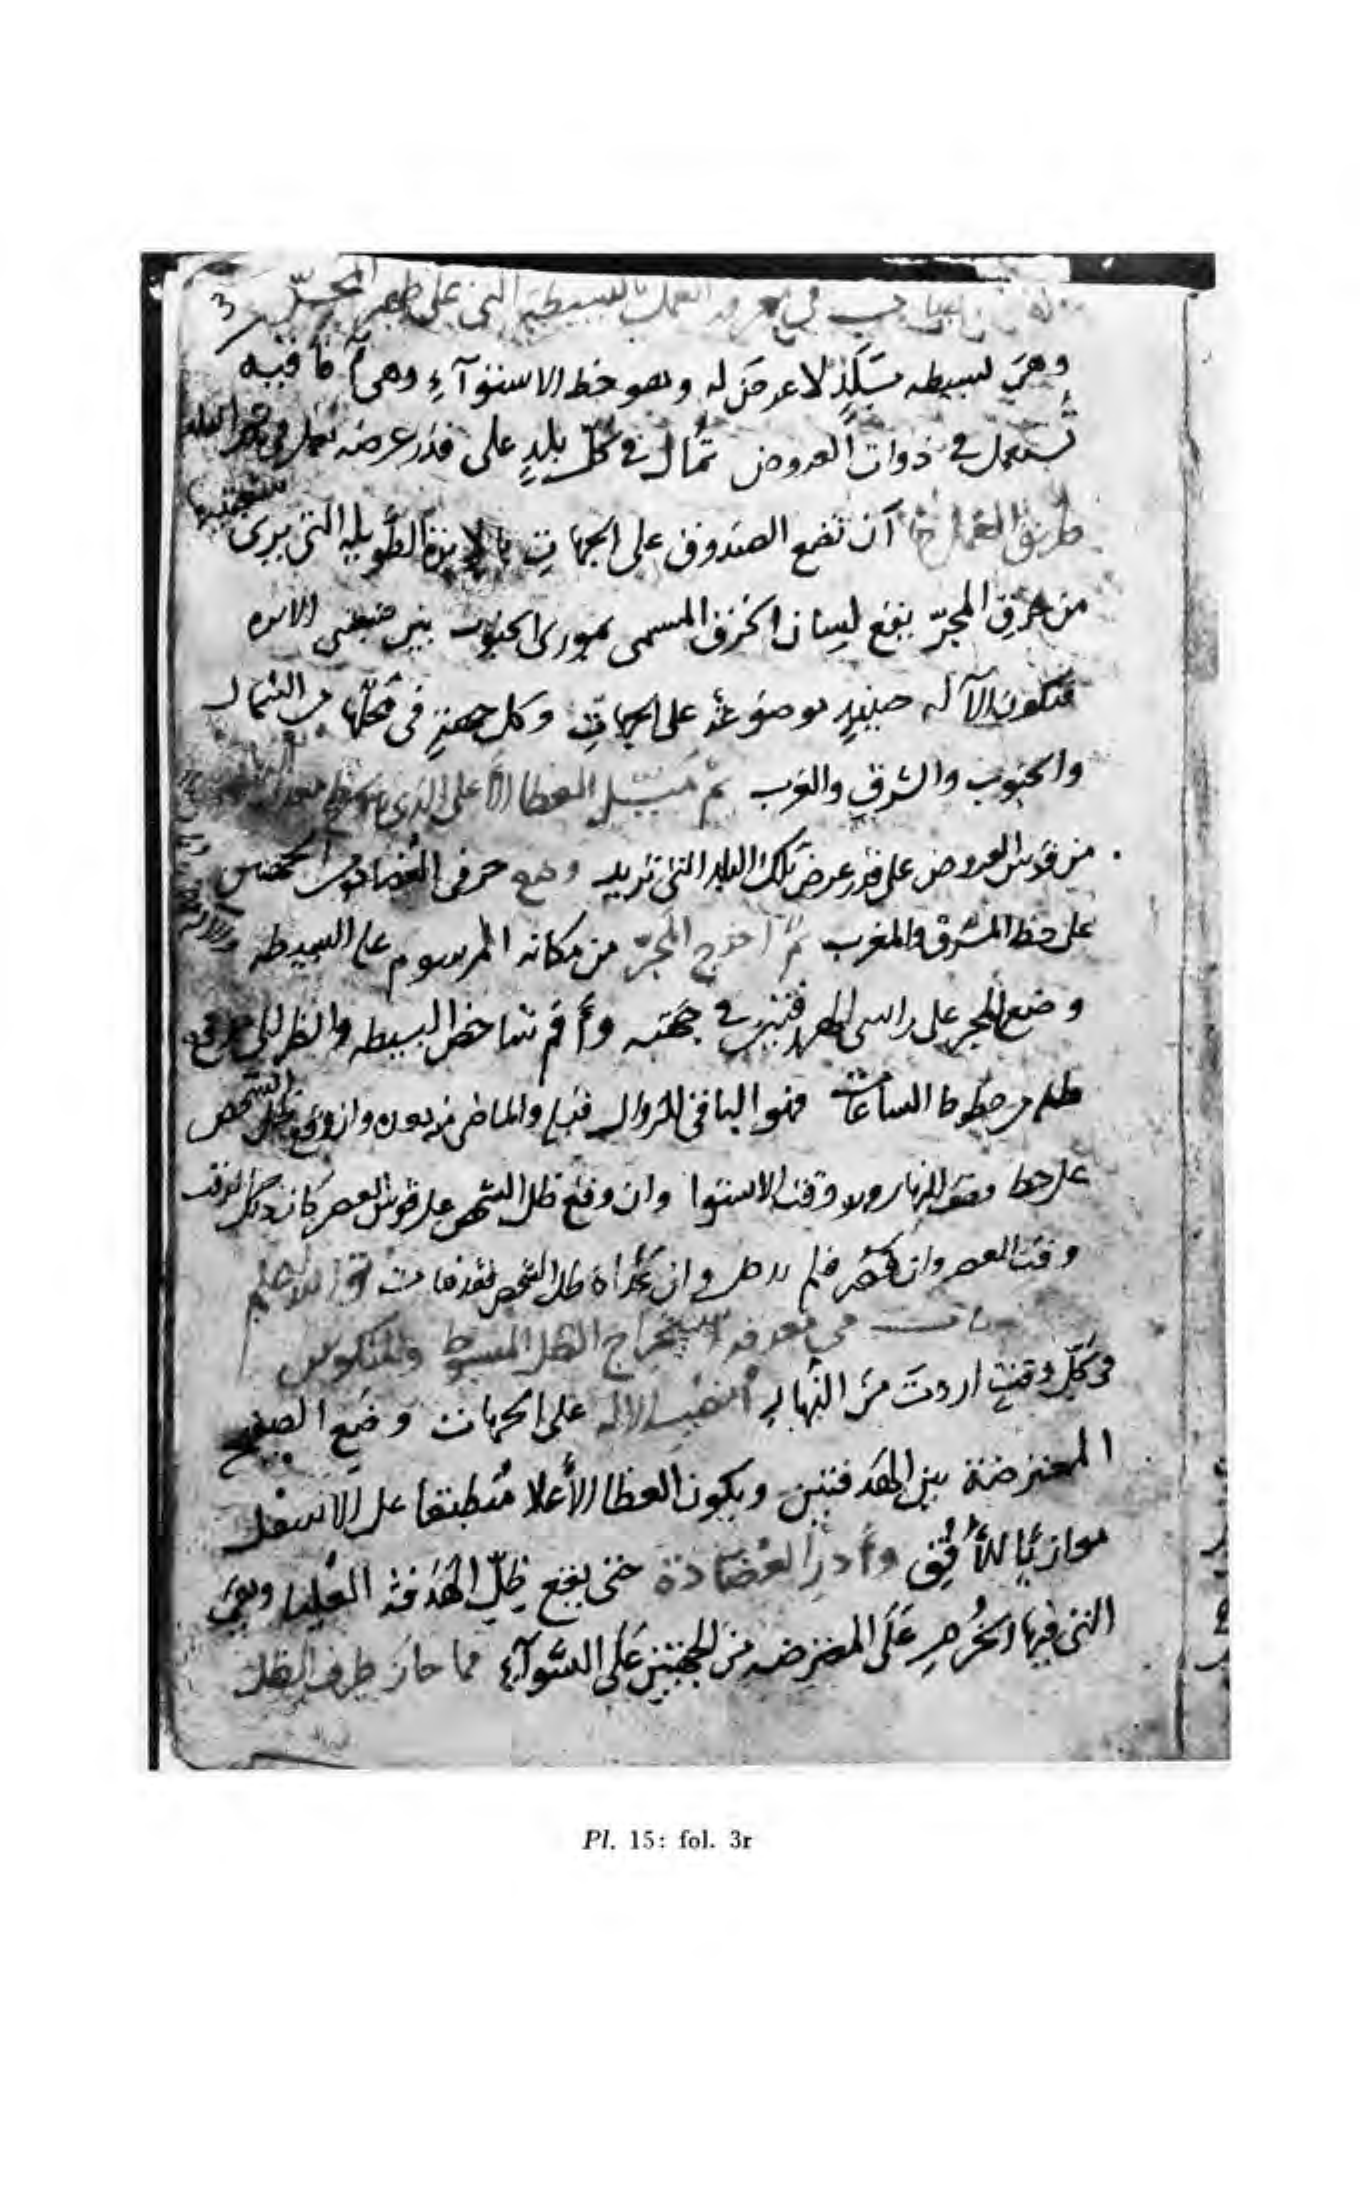 3
في معرفة العمل بالبسيطة التي على ظهر المجرّ
وهي بسيطه بَلَدٍ لا عرض له وهو خط الاستوآء وهي آفاقيه
تُستعمل في ذوات العروض تُمال في كلّ بلدٍ على قدر عرضه
طريق العمل أن تضع الصندوق على الجهاتِ بالإبرة الطويله التي يرى
من خرق المجرّ يقع لسان الخزف المسمى بمورى الجنوب بين الابره
فتكون الآله حينيذٍ موضوعةً على الجهاتِ وكل جهةٍ في محلّها من الشمال
والجنوب والشرق والغرب ثم مَيّل الغطا الأعلى الذي
من قوس العروض على قدر عرض تلك البلد التي تريد وضع حرفى العُضادة
على خط المشرق والمغرب ثمّ أخرج المجرّ من مكانه المرسوم على البسيطه
وضع المجر على راسى الهدفتين في جهته وأقم شاخص البسيطه وانظر الى
ظله من خطوط الساعات فهو الباقي للزوال قبله والماضي من بعده وان وقع ظل الشخص
على خط نصف النهار وهو وقت الاستوا وان وقع ظل الشخص على قوس العصر كان ذلك الوقت
وقت العصر وان قصر فلم يدخل وان تعداه ظل الشخص فقد فات والله اعلم
باب في معرفة استخراج الظل المبسوط والمنكوس
في كلّ وقتٍ اردتَ منَ النّهار انصب الاله على الجهات وضع الصفيحه
المعترضة بين الهدفتين ويكون الغطا الأعلا مُنطبقا على الاسفل
موازيًا للأُفُق وأدر العُضَادة حتى يقع ظِلّ الهَدَفة العُليا وهي
التي فيها الخُرم علَى المعترضه منَ الجهتين علَى السّوآء فما حاز طرف الظل
Pl. 15: fol. 3r